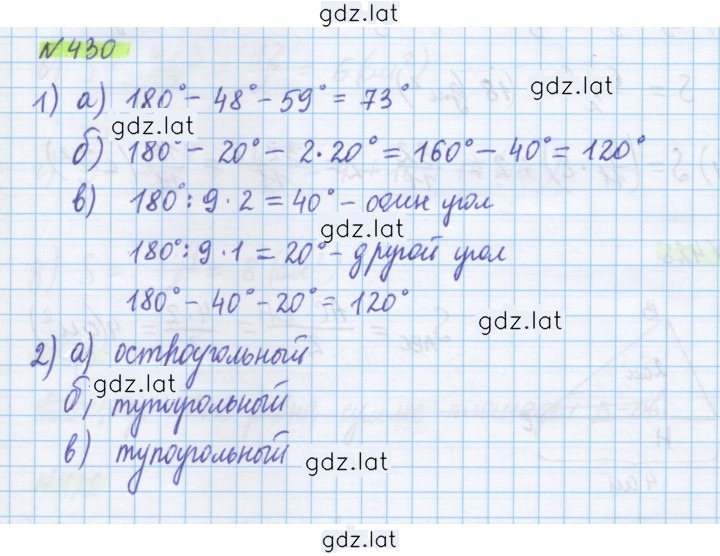 gdz.lat
№430
1) а) 180° - 48° - 59° = 73°
gdz.lat
gdz.lat
б) 180° - 20° - 2·20° = 160° - 40° = 120°
в) 180° : 9 · 2 = 40° - один угол
gdz.lat
180° : 9 · 1 = 20° - другой угол
180° - 40° - 20° = 120°
gdz.lat
2) а) остроугольный
gdz.lat
б) тупоугольный
в) тупоугольный
gdz.lat
gdz.lat